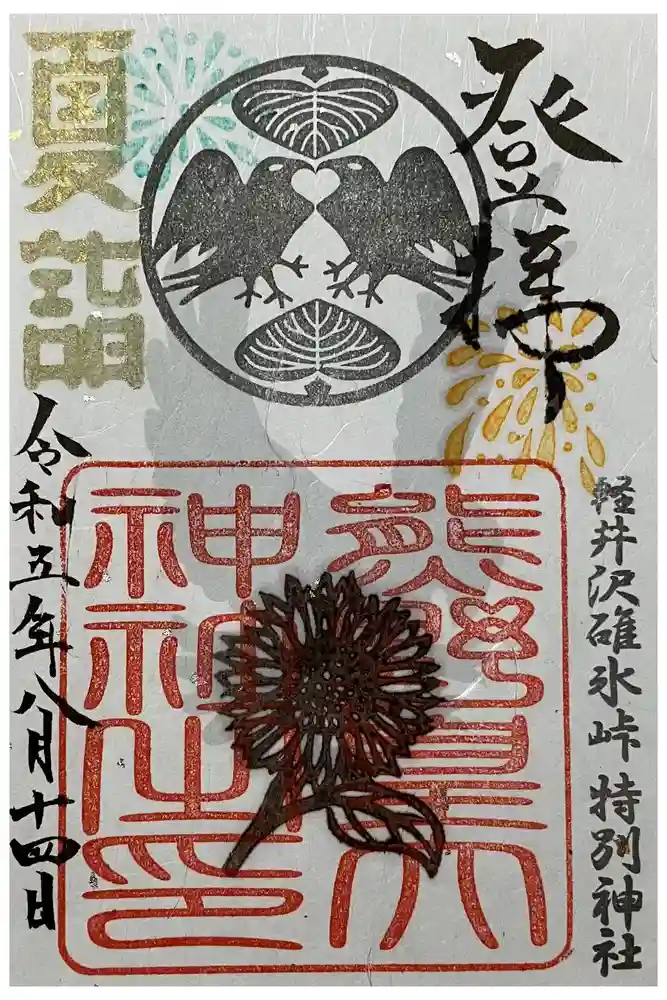 登拝
軽井沢碓氷峠特別神社
熊野皇大
神社
神社之印
夏詣
令和五年八月十四日